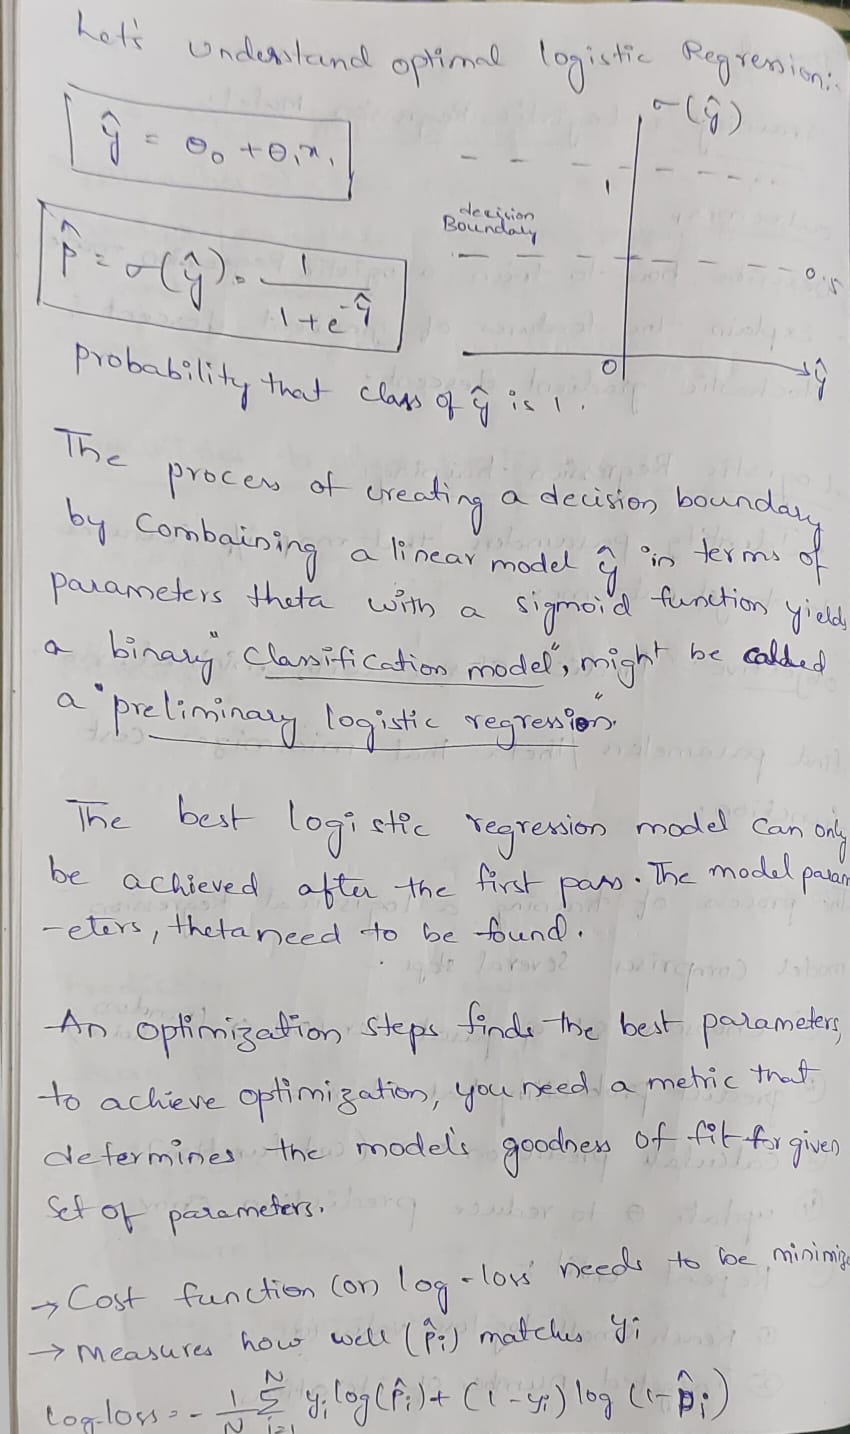 Let's understand optimal logistic Regression:
ŷ = θ₀ + θ₁x₁
σ(ŷ)
1
decision
Boundary
0.5
0
ŷ
p̂ = σ(ŷ) = 1 / 1 + e^-ŷ
probability that class of ŷ is 1.
The process of creating a decision boundary
by combaining a linear model ŷ in terms of
parameters theta with a sigmoid function yields
a binary "classification model", might be called
a "preliminary logistic regression".
The best logistic regression model can only
be achieved after the first pass. The model param
-eters, theta need to be found.
An optimization steps finds the best parameters,
to achieve optimization, you need a metric that
determines the model's goodness of fit for given
set of parameters.
→ Cost function (or) log-loss needs to be minimize
→ measures how well (p̂i) matches yi
Log-loss = - 1/N Σ_{i=1}^{N} yi log(p̂i) + (1 - yi) log (1 - p̂i)